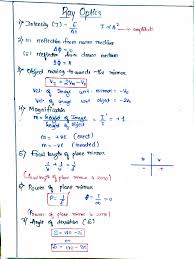 Ray Optics
1) Intensity (I) = E/At I ∝ A² → amplitude
2) (i) reflection from rarer medium
Δφ = π
(ii) reflection from denser medium
3) Object moving towards the mirror
Vel of image wrt mirror = -Vo
Vel of image wrt object = -2Vo
4) Magnification
m = height of image / height of object = I/O = +1
m = +ve (erect)
m = -ve (inverted)
5) Focal length of plane mirror
1/v + 1/u = 1/f
(focal length of plane mirror is
6) Power of plane mirror
P = 1/f
(Power of plane mirror is zero)
7) Angle of deviation (δ)
δ = 180 - 2i